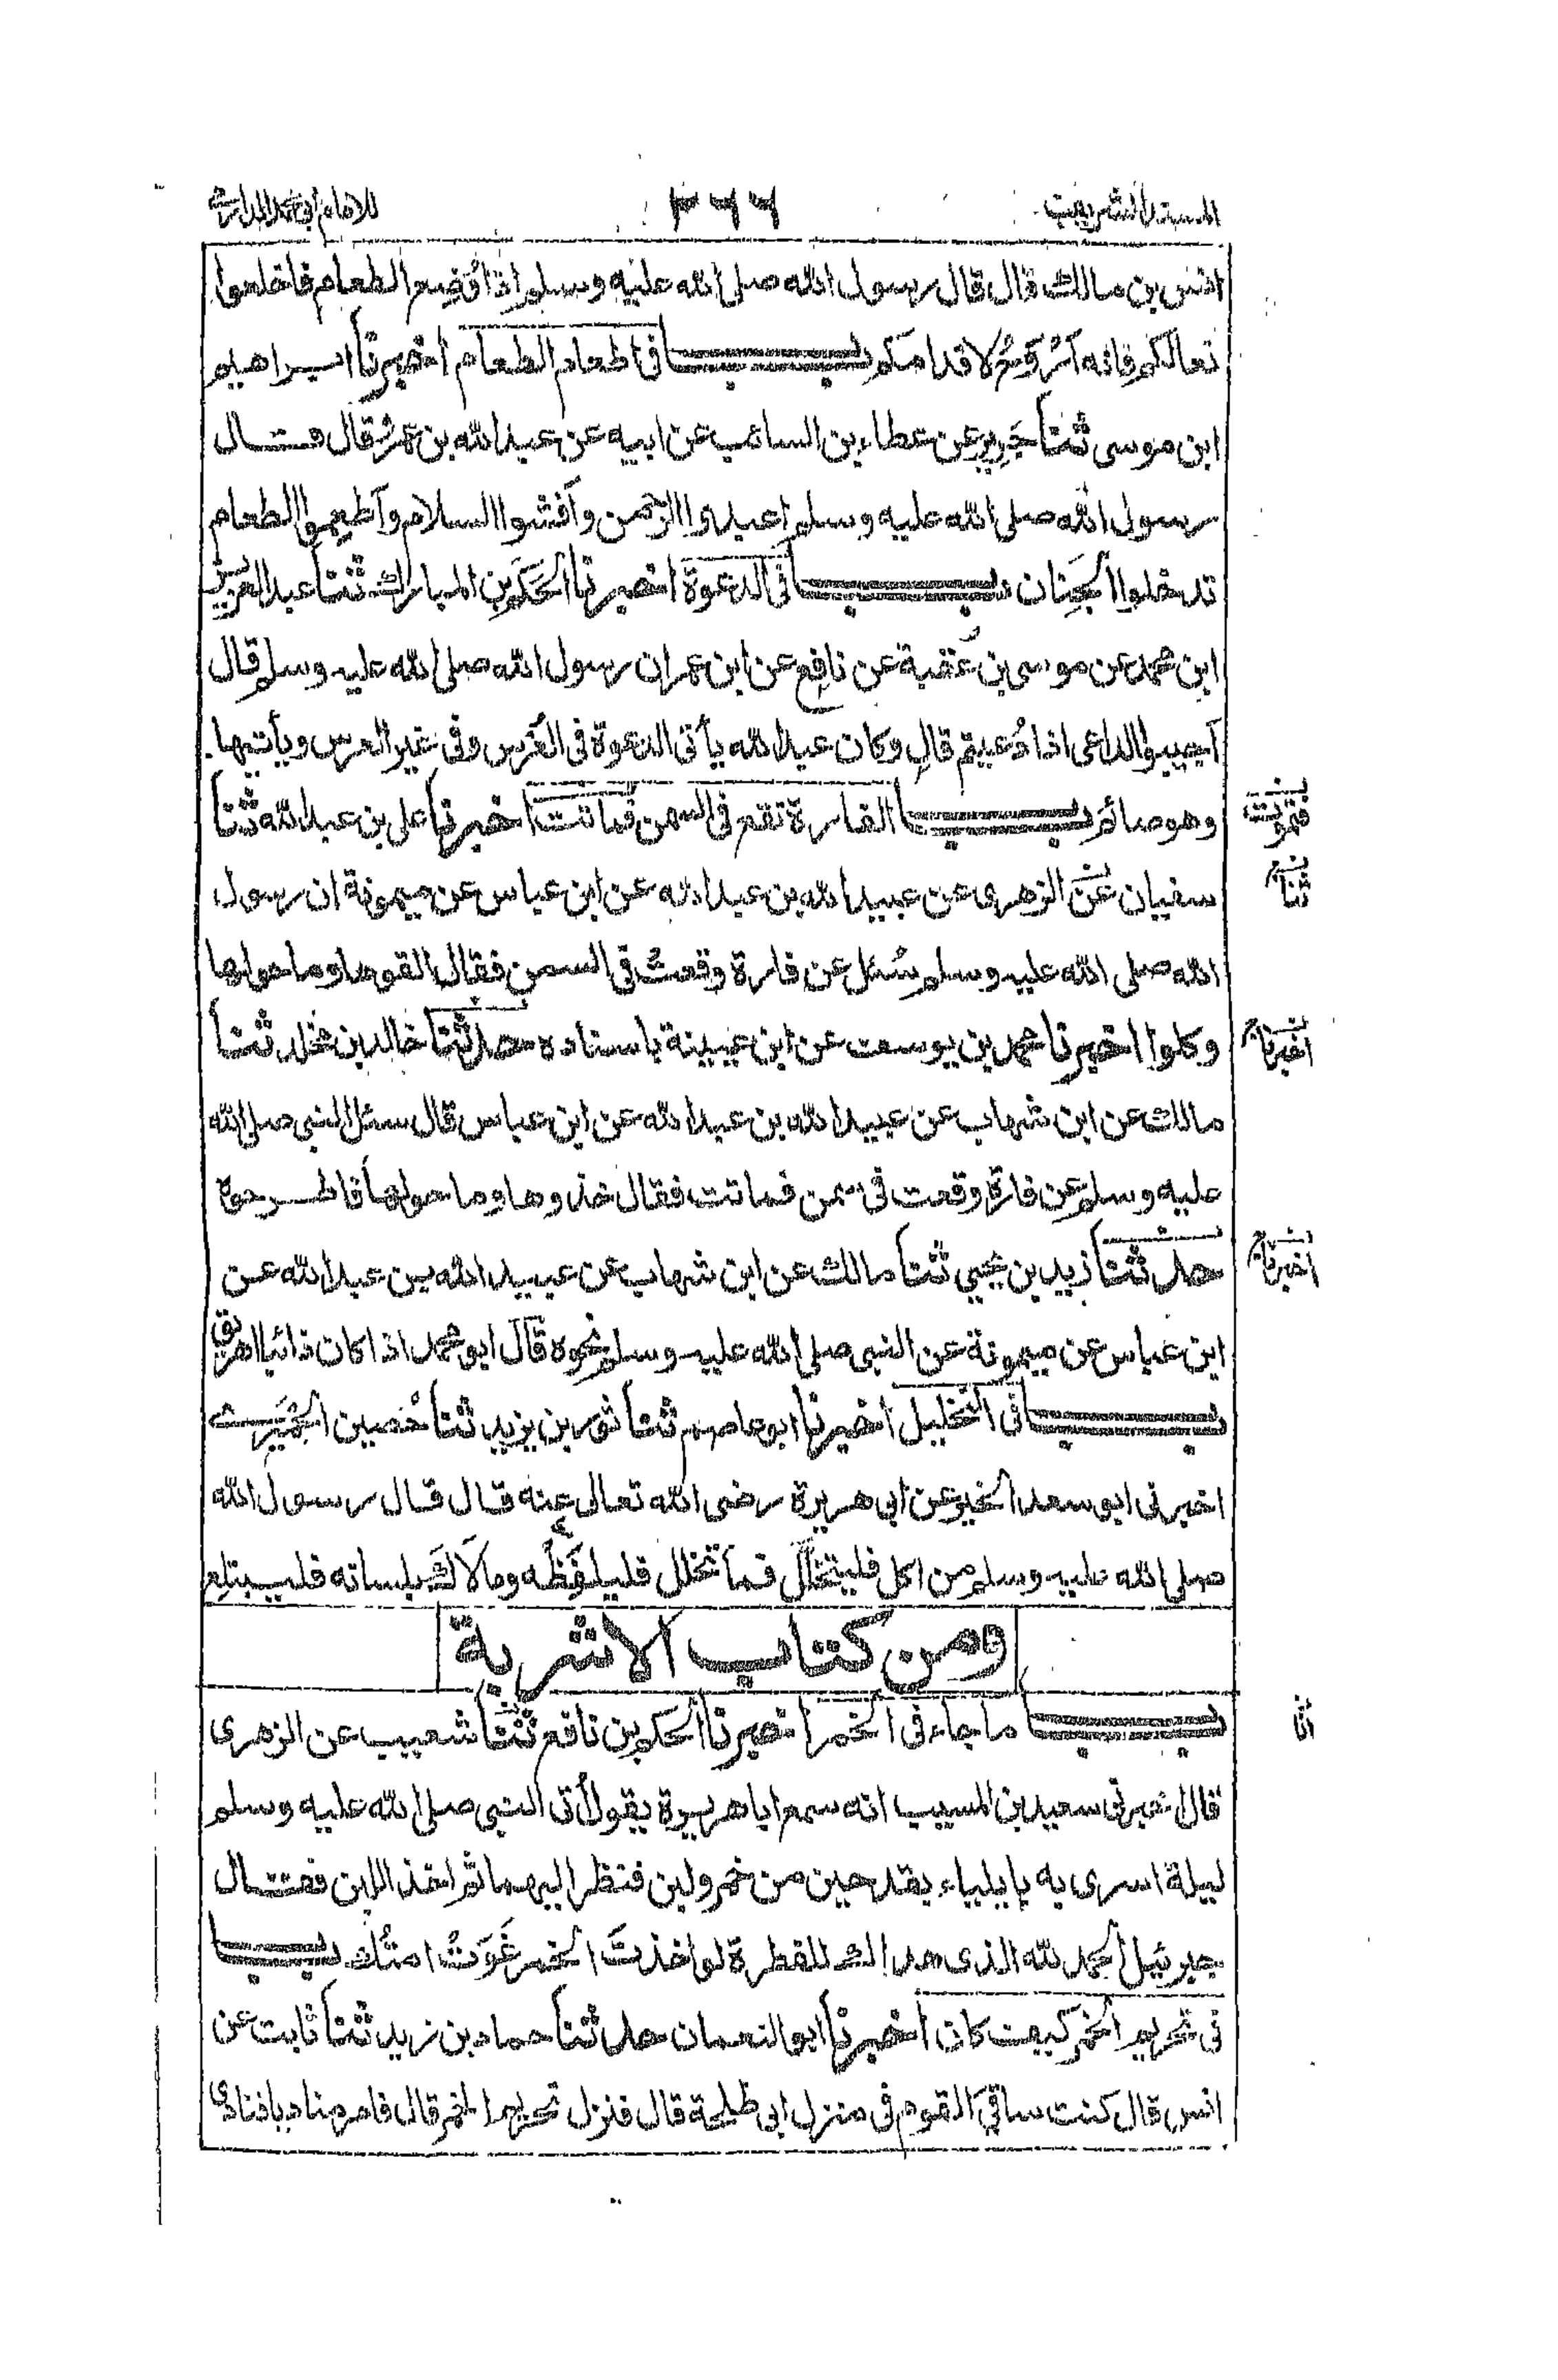 المسند الشريف ٢٦٦ للامام ابي محمد الدارمي
انس بن مالك قال قال رسول الله صلى الله عليه وسلم اذا وُضِع الطعام فاخلعوا
نعالكم فانه اَرْوَحُ لاقدامكم بـــاب فى اطعام الطعام اخبرنا ابراهيم
ابن موسى ثنا جَرِير عن عطاء بن السائب عن ابيه عن عبد الله بن عمرو قال قال
رسول الله صلى الله عليه وسلم اعبدوا الرحمن وأفشوا السلام وأطعِموا الطعام
تدخلوا الجِنان بـــاب فى الدعوة اخبرنا الحَكَم بن المبارك ثنا عبد العزيز
ابن محمد عن موسى بن عُقبة عن نافِع عن ابن عمر ان رسول الله صلى الله عليه وسلم قال
أجيبوا الداعى اذا دُعيتم قال وكان عبد الله يأتى الدعوة فى العُرس وفى غير العرس ويأتيها
وهو صائم بـــاب الفارة تقع فى السمن فماتت اخبرنا على بن عبد الله ثنا
فتموت
سفيان عن الزهرى عن عبيد الله بن عبد الله عن ابن عباس عن ميمونة ان رسول
ثنا
الله صلى الله عليه وسلم سُئل عن فارة وقعت فى السمن فقال القوها وما حولها
وكلوا اخبرنا محمد بن يوسف عن ابن عيينة باسناده حدثنا خالد بن مخلد ثنا
اخبرنا
مالك عن ابن شهاب عن عبيد الله بن عبد الله عن ابن عباس قال سئل النبى صلى الله
عليه وسلم عن فارة وقعت فى سمن فماتت فقال خذوها وما حولها فاطرحوه
حدثنا زيد بن يحيى ثنا مالك عن ابن شهاب عن عبيد الله بن عبد الله عن
اخبرنا
ابن عباس عن ميمونة عن النبى صلى الله عليه وسلم نحوه قال ابو محمد اذا كان ذائبا اهريق
بـــاب فى التخليل اخبرنا ابو عاصم ثنا ثور بن يزيد ثنا حُصين الحِمْيَرى
اخبرنى ابو سعد الخير عن ابى هريرة رضى الله تعالى عنه قال قال رسول الله
صلى الله عليه وسلم من اكل فليتخلل فما تخلل فليلفظه وما لاك بلسانه فليبتلع
ومن كتاب الاشربة
بـــاب ما جاء فى الخمر اخبرنا الحكم بن نافع ثنا شعيب عن الزهرى
انا
قال اخبرنى سعيد بن المسيب انه سمع ابا هريرة يقول أتى النبى صلى الله عليه وسلم
ليلة اسرى به بايلياء بقدحين من خمر ولبن فنظر اليهما ثم اخذ اللبن فقال
جبرئيل الحمد لله الذى هداك للفطرة لو اخذتَ الخمر غَوَتْ امتُك بـــاب
فى تحريم الخمر كيف كان اخبرنا ابو النعمان حدثنا حماد بن زيد ثنا ثابت عن
انس قال كنت ساقِيَ القوم فى منزل ابى طلحة قال فنزل تحريم الخمر قال فامر مناديا فنادى